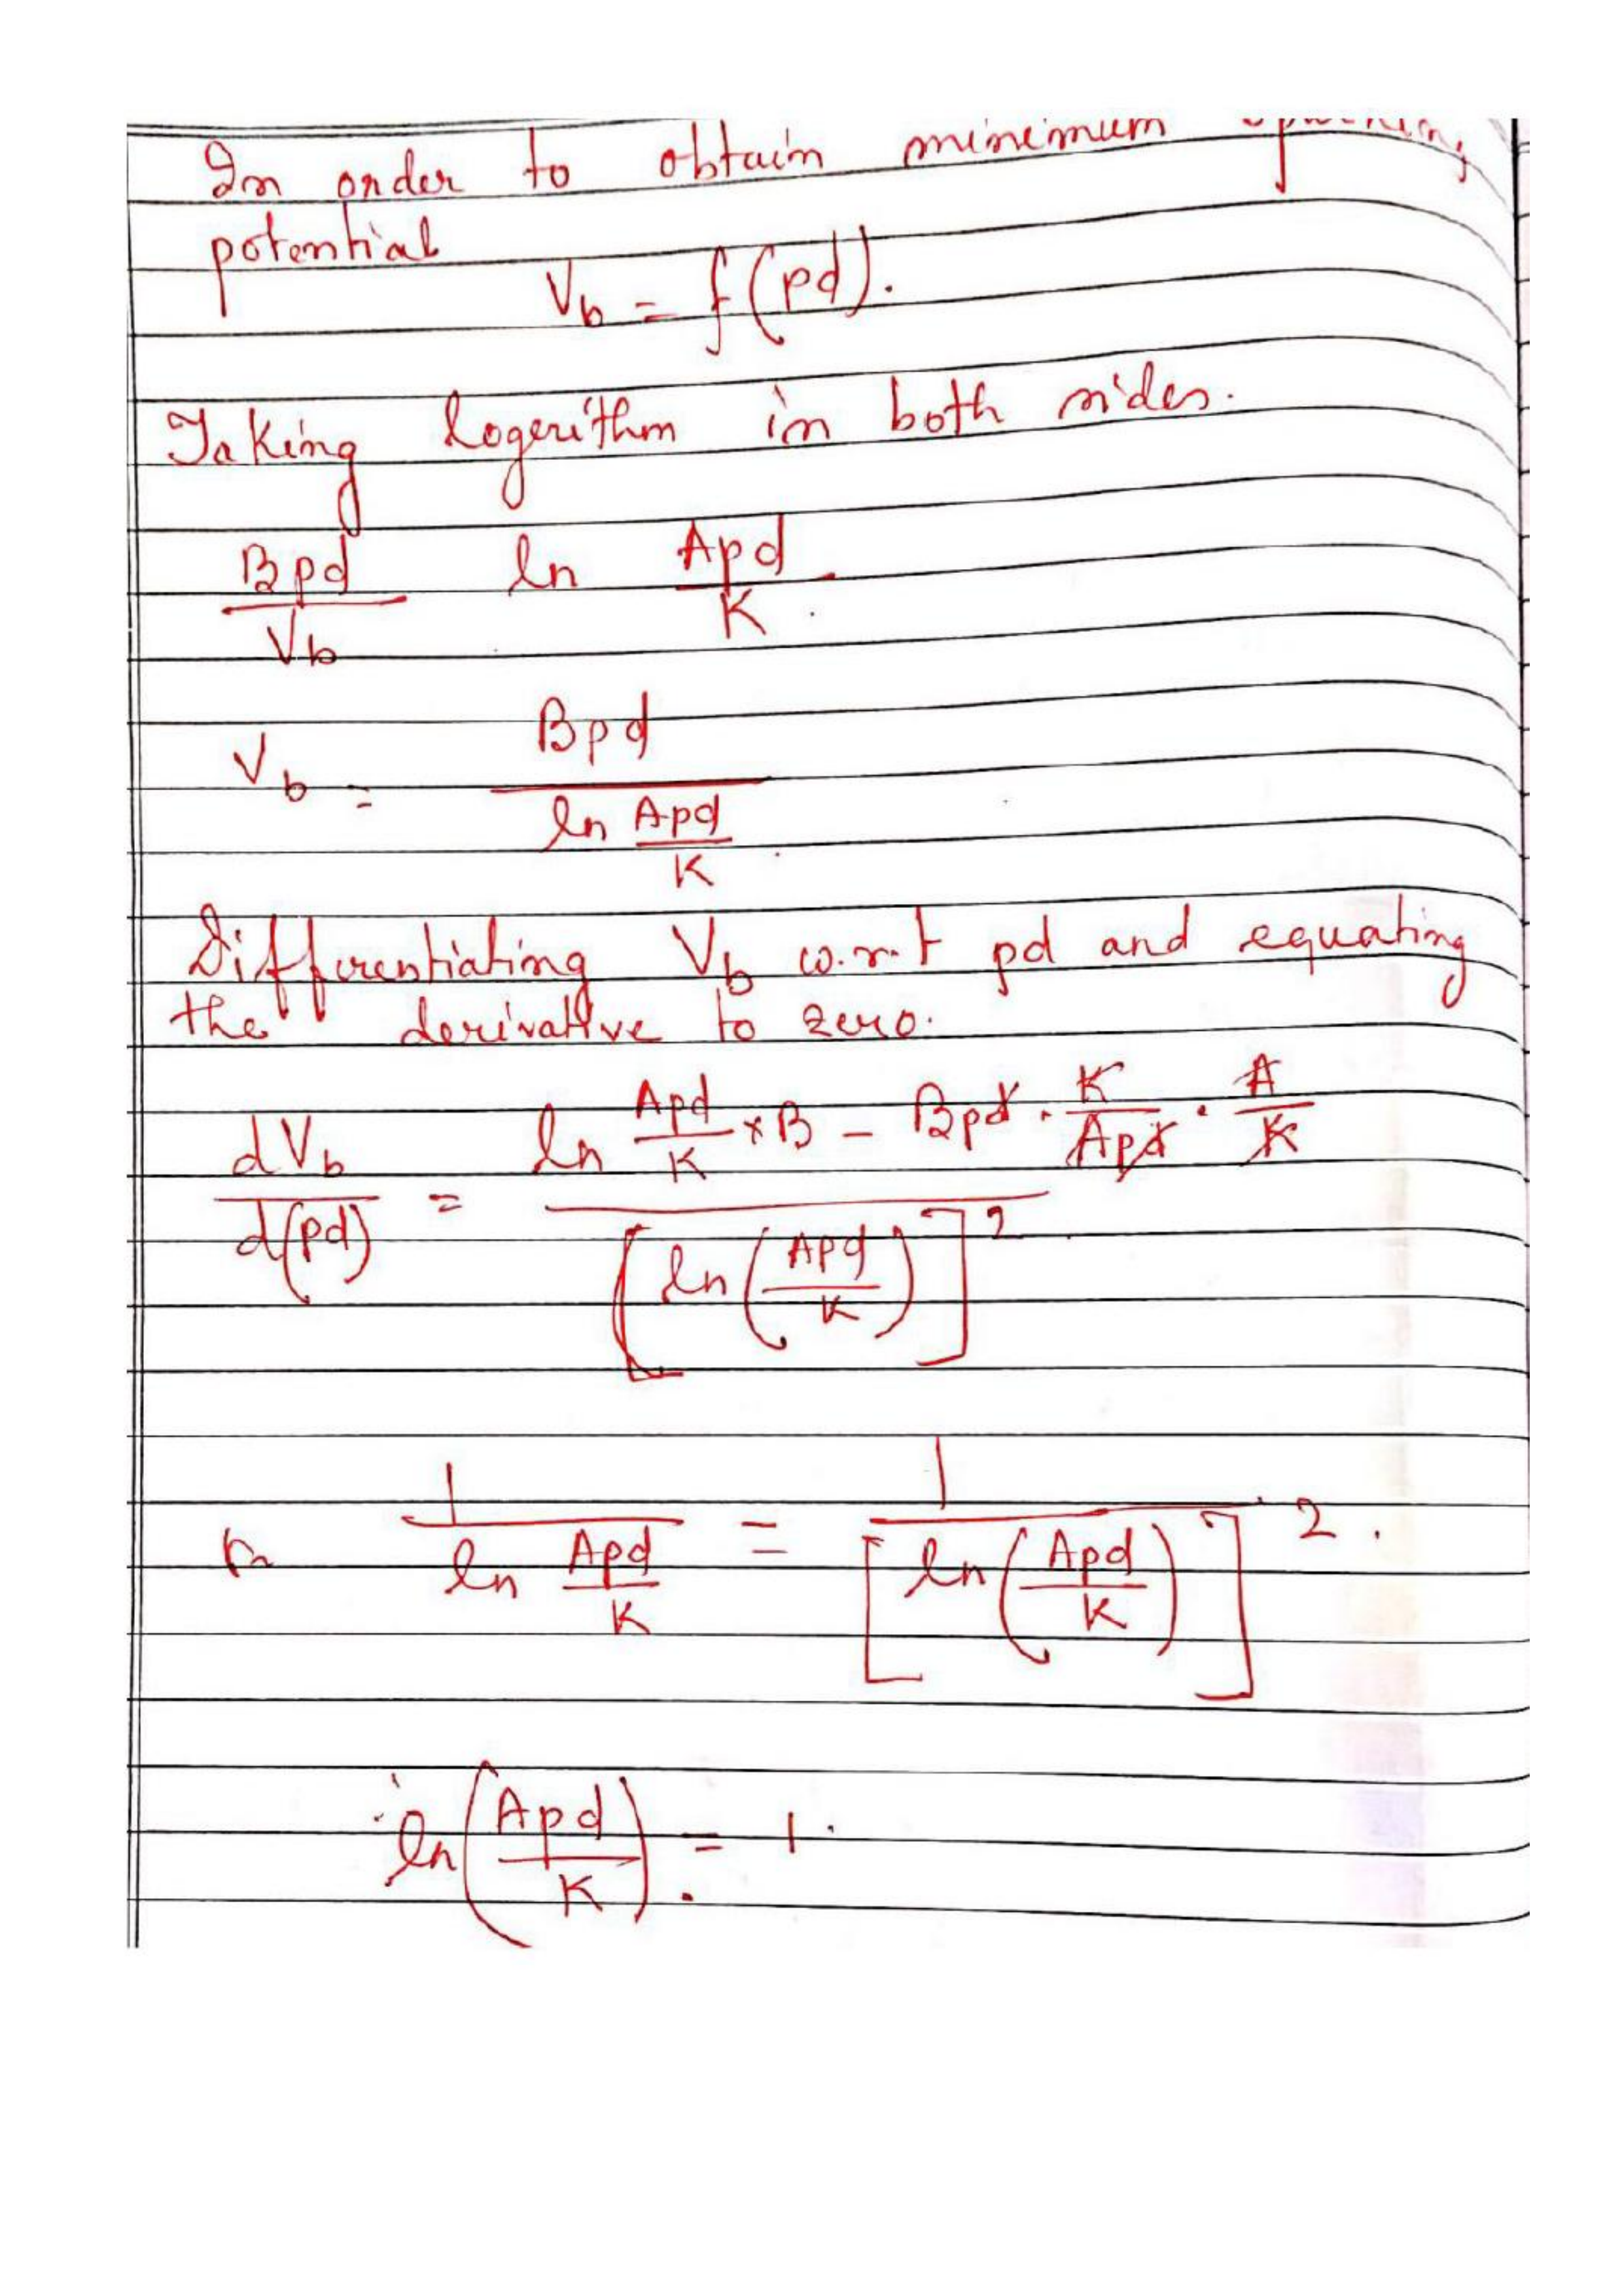 In order to obtain minimum
potential
Vb = f(pd).
Taking logerithm in both sides.
Bpd/Vb ln Apd/K.
Vb = Bpd / ln Apd/K.
Differentiating Vb w.r.t pd and equating
the derivative to zero.
dVb/d(pd) = (ln Apd/K × B − Bpd · K/Apd · A/K) / [ln(Apd/K)]²
1/(ln Apd/K) = 1/[ln(Apd/K)]².
ln(Apd/K) = 1.